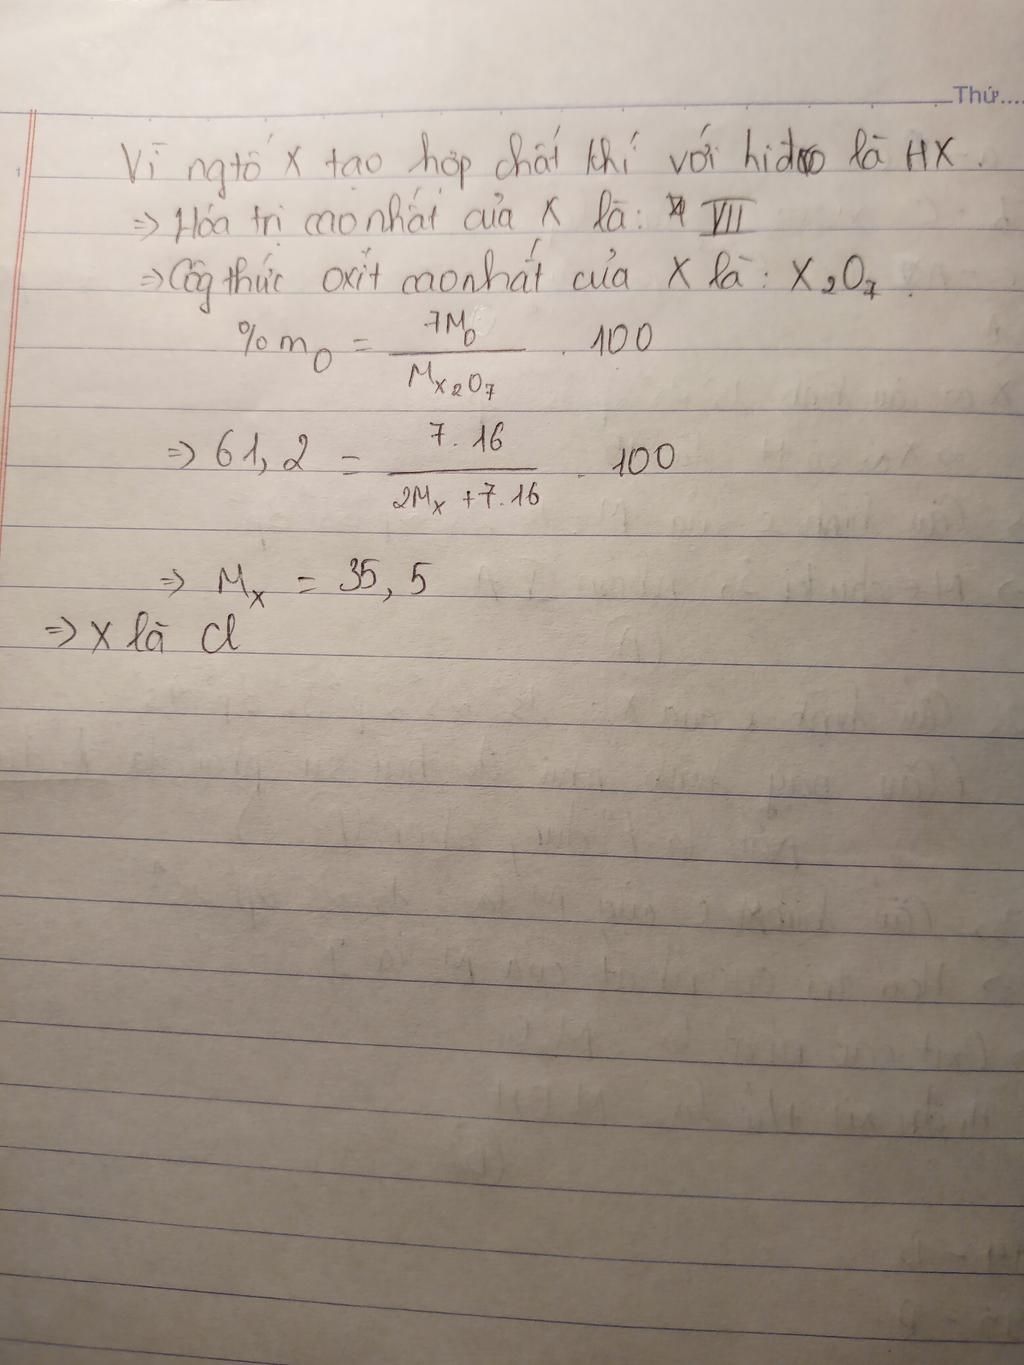 Thứ....
Vì ngtố X tạo hợp chất khí với hiđro là HX.
=> Hóa trị cao nhất của X là: VII
=> Côg thức oxit cao nhất của X là: X₂O₇.
%m₀ = 7M₀ / M X₂O₇ . 100
=> 61,2 = 7.16 / 2Mₓ + 7.16 . 100
=> Mₓ = 35,5
=> X là Cl